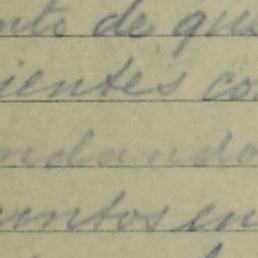 nte de que
ientes co
ndando
untos en